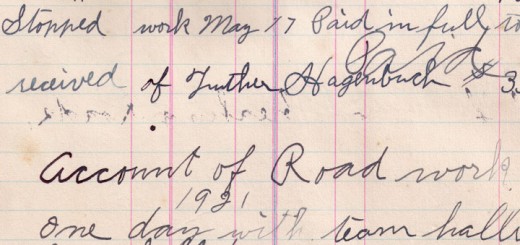 Stopped work May 17 Paid in full to
Paid
received of Luther Hagenbuch $ 3.
Account of Road work
1921
One day with team hall